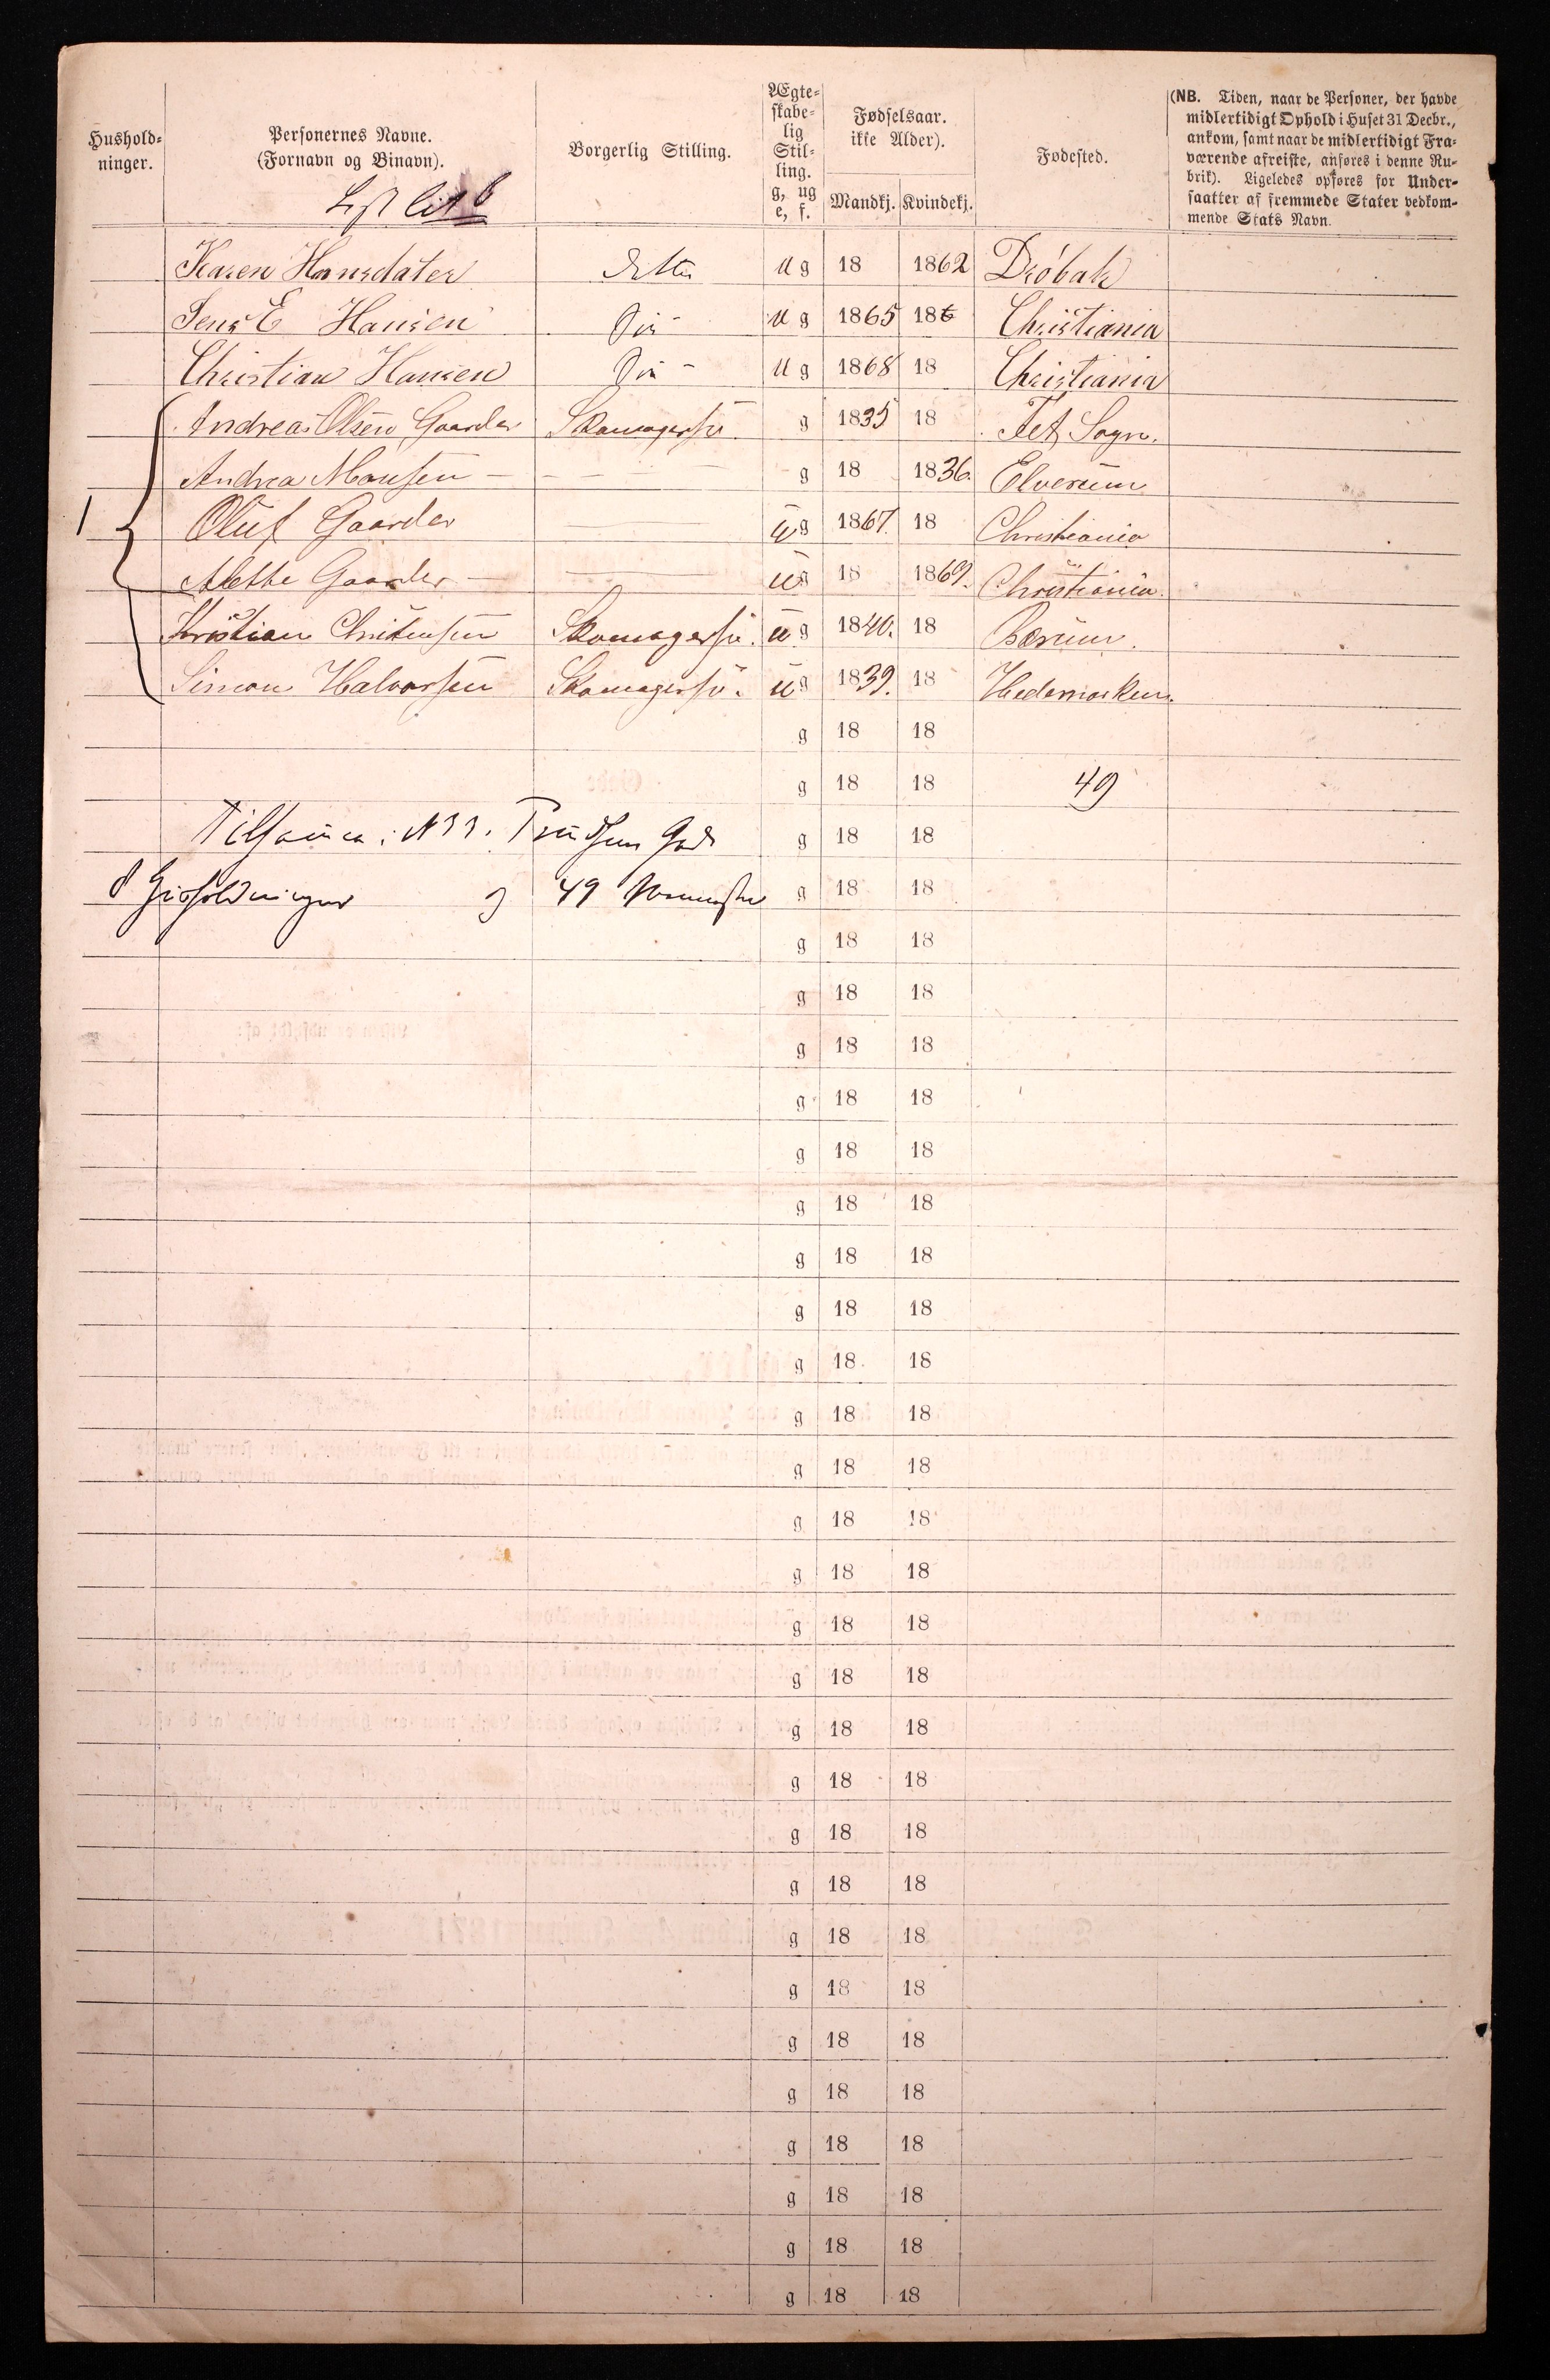 Hushold-
ninger.
Personernes Navne.
(Fornavn og Binavn).
Borgerlig Stilling.
Ægte-
skabe-
lig
Stil-
ling.
g, ug
e, f.
Fødselsaar.
ikke Alder).
Mandkj. Kvindekj.
Fødested.
(NB. Tiden, naar de Personer, der havde
midlertidigt Ophold i Huset 31 Decbr.,
ankom, samt naar de midlertidigt Fra-
værende afreiste, anføres i denne Ru-
brik). Ligeledes opføres for Under-
saatter af fremmede Stater vedkom-
mende Stats Navn.
Karen Hansdater Datter ug 18 1862 Dröbak
Jens E Hansen Søn ug 1865 18 Christiania
Christian Hansen Søn ug 1868 18 Christiania
Andreas Olsen Gaarder g 1835 18 Fet Sogn.
Andrea g 18 1836. Elverum
1 Oluf Gaarder ug 1867. 18 Christiania
Mathe Gaarder ug 18 1869. Christiania.
Kristian Christensen ug 1840. 18 Bærum.
Simon Halvorsen ug 1839. 18 Hedemarken.
g 18 18
g 18 18 49
g 18 18
8 Husholdninger og 49 g 18 18
g 18 18
g 18 18
g 18 18
g 18 18
g 18 18
g 18 18
g 18 18
g 18 18
g 18 18
g 18 18
g 18 18
g 18 18
g 18 18
g 18 18
g 18 18
g 18 18
g 18 18
g 18 18
g 18 18
g 18 18
g 18 18
g 18 18
g 18 18
g 18 18
g 18 18
g 18 18
g 18 18